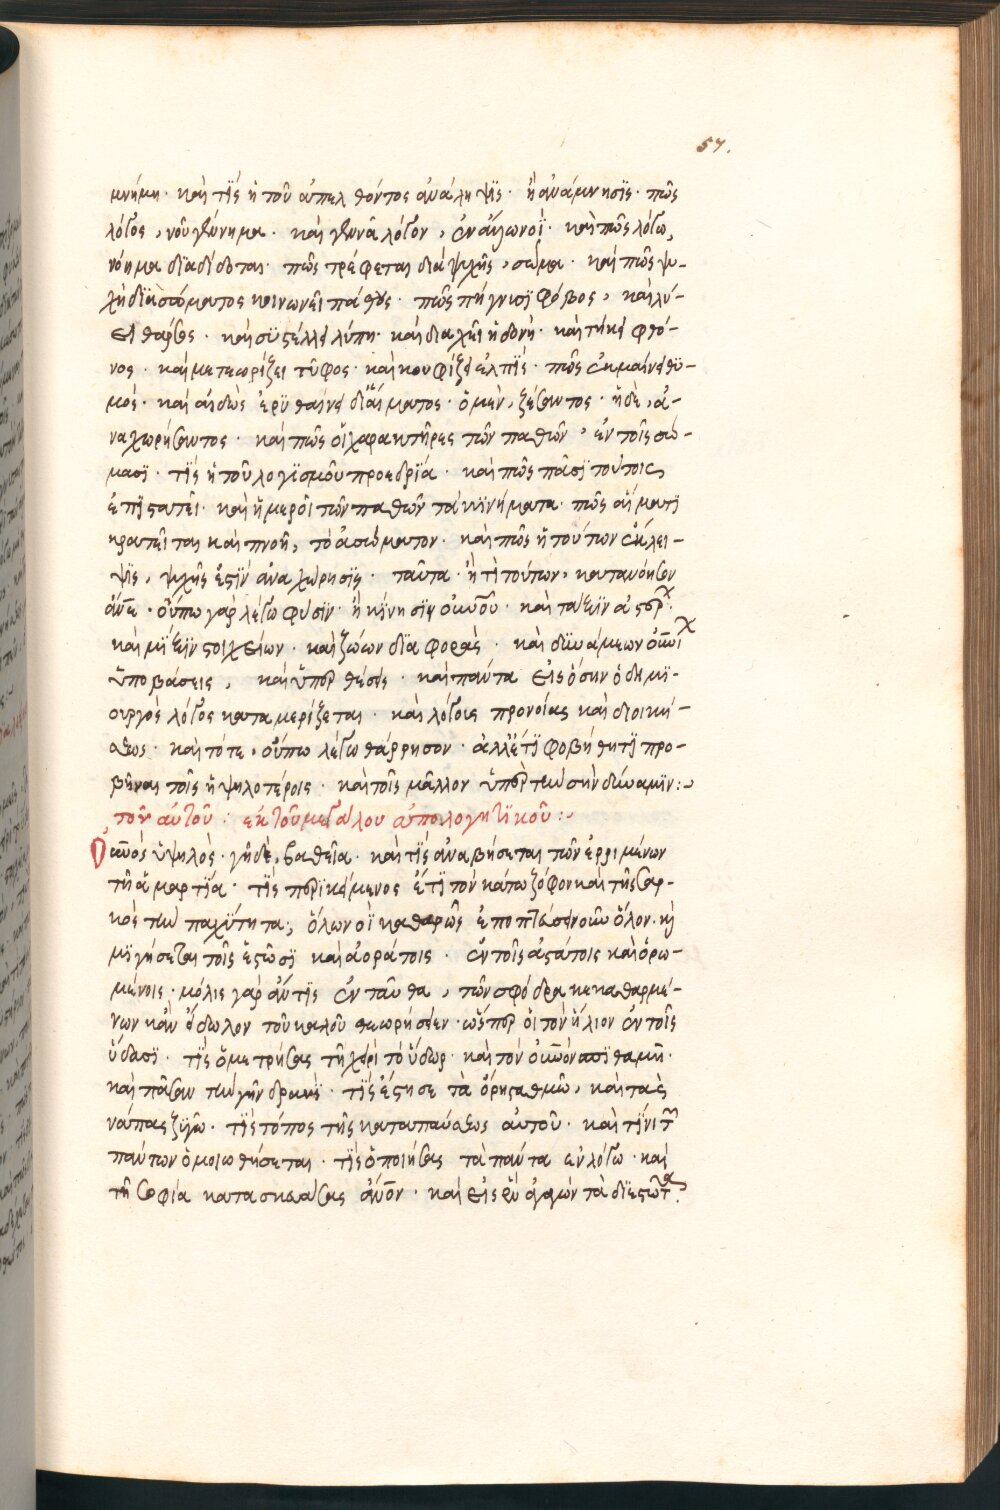 57.
μνήμη · καὶ τίς ἡ τοῦ ἀπελθόντος ἀνάληψις · ἡ ἀνάμνησις · πῶς
λόγος, νοῦ γέννημα · καὶ γεννᾶ λόγον, ἐν ἄλλωνοϊ · καὶ πῶς λόγω,
νόημα διαδίδοται · πῶς τρέφεται διὰ ψυχῆς, σῶμα · καὶ πῶς ψυ-
χὴ διὰ σώματος κοινωνεῖ πάθους · πῶς πήγνυσι φόβος, καὶ λύ-
ει θάρσος · καὶ συστέλλει λύπη · καὶ διαχεῖ ἡδονή · καὶ τήκει φθό-
νος · καὶ μετεωρίζει τῦφος · καὶ κουφίζει ἐλπίς · πῶς ἐκμαίνει θυ-
μός · καὶ αἰδὼς ἐρυθαίνει δι' αἵματος · ὁ μὲν, ζέσαντος · ἡ δὲ, ἀ-
ναχωρήσαντος · καὶ πῶς οἱ χαρακτῆρες τῶν παθῶν, ἐν τοῖς σώ-
μασι · τίς ἡ τοῦ λογισμοῦ προεδρία · καὶ πῶς πᾶσι τούτοις
ἐπιστατεῖ · καὶ ἡμεροῖ τῶν παθῶν τὰ κινήματα · πῶς αἵματι
κρατεῖται καὶ πνοῆ, τὸ ἀσώματον · καὶ πῶς ἡ τούτων ἔκλει-
ψις, ψυχῆς ἐστὶν ἀναχώρησις · ταῦτα · ἤ τι τούτων, κατανόησον
ἄνε · οὔπω γὰρ λέγω φύσιν · ἢ κίνησιν οὐνοῦ · καὶ τάξιν ἀστέρ ·
καὶ μίξιν στοιχείων · καὶ ζώων διαφορὰς · καὶ δυνάμεων οὐνι
ὑποβάσεις, καὶ ὑπερθέσεις · καὶ πάντα εἰς ὅσην ὁ δημι-
ουργὸς λόγος καταμερίζεται · καὶ λόγους προνοίας καὶ διοικη-
σεως · καὶ τότε, οὔπω λέγω θάρρησον · ἀλλ' ἔτι φοβήθητι προ-
βῆναι τοῖς ὑψηλοτέροις · καὶ τοῖς μᾶλλον ὑπὲρ τὴν σὴν δύναμιν :
τοῦ αὐτοῦ : ἐκ τοῦ μεγάλου ἀπολογητικοῦ :
Οὐνὸς ὑψηλὸς · γῆ δὲ, βαθεῖα · καὶ τίς ἀναβήσεται τῶν ἐρριμένων
τῆ ἁμαρτία · τίς περικείμενος ἔτι τὸν κάτω ζόφον καὶ τῆς σαρ-
κὸς τὴν παχύτητα, ὅλω νοῒ καθαρῶς ἐποπτεύσει νοῦν ὅλον · κὴ
μιγήσεται τοῖς ἑστῶσι καὶ ἀοράτοις · ἐν τοῖς ἀστάτοις καὶ ὁρω-
μένοις · μόλις γὰρ ἄν τις ἐνταῦθα, τῶν σφόδρα κεκαθαρμέ-
νων κἂν εἴδωλον τοῦ καλοῦ θεωρήσειεν · ὥσπερ οἱ τὸν ἥλιον ἐν τοῖς
ὕδασι · τίς ἐμετρήσας τῆ χειρὶ τὸ ὕδωρ · καὶ τὸν οὐνὸν σπιθαμῆ ·
καὶ πᾶσαν τὴν γῆν δρακὶ · τίς ἔστησε τὰ ὄρη σταθμῶ, καὶ τὰς
νάπας ζυγῶ · τίς τόπος τῆς καταπαύσεως αὐτοῦ · καὶ τίνι τ
πάντων ὁμοιωθήσεται · τίς ὁ ποιήσας τὰ πάντα ἐν λόγω · καὶ
τῆ σοφία κατασκευάσας ἄνον · καὶ εἰς ἓν ἀγαγὼν τὰ διεστῶτα ·